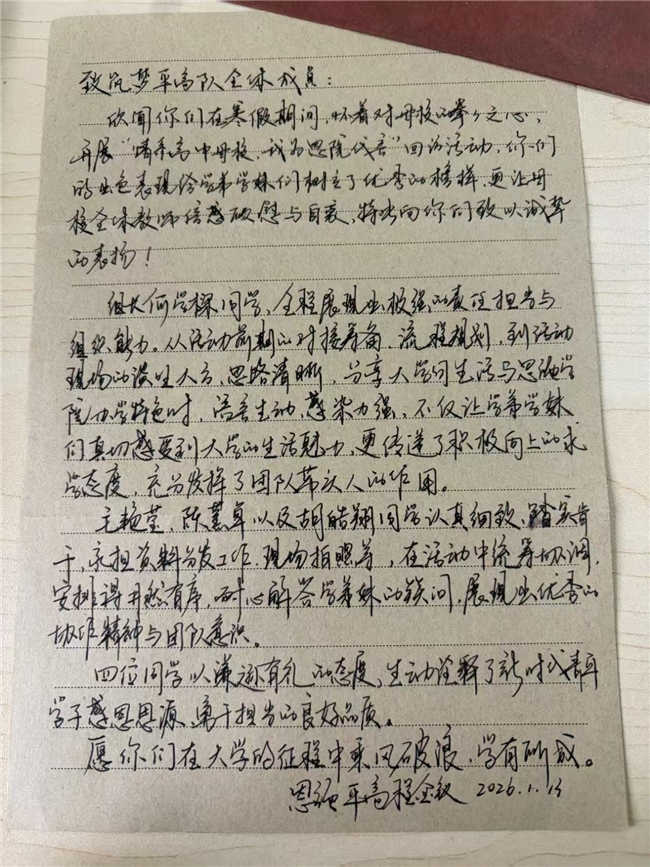 致筑梦平高队全体成员：
欣闻你们在寒假期间，怀着对母校的拳々之心，
开展“情系高中母校，我为思院代言”回访活动，你们
的出色表现给学弟学妹们树立了优秀的榜样，更让母
校全体教师倍感欣慰与自豪，特此向你们致以诚挚
的表扬！
组长何学探同学，全程展现出极强的责任担当与
组织能力。从活动前期的对接筹备、流程规划，到活动
现场的谈吐大方、思路清晰，分享大学的生活与思源学
院办学特色时，语言生动，感染力强，不仅让学弟学妹
们真切感受到大学的生活魅力，更传递了积极向上的求
学态度，充分发挥了团队带头人的作用。
毛艳莹，陈慧卓以及胡皓翔同学认真细致、踏实肯
干，承担资料分发工作，现场拍照等，在活动中统筹协调，
安排得井然有序，耐心解答学弟妹的疑问，展现出优秀的
协作精神与团队意识。
四位同学以谦逊有礼的态度，生动诠释了新时代青年
学子感恩思源、勇于担当的良好品质。
愿你们在大学的征程中乘风破浪，学有所成。
平高程全 2026.1.